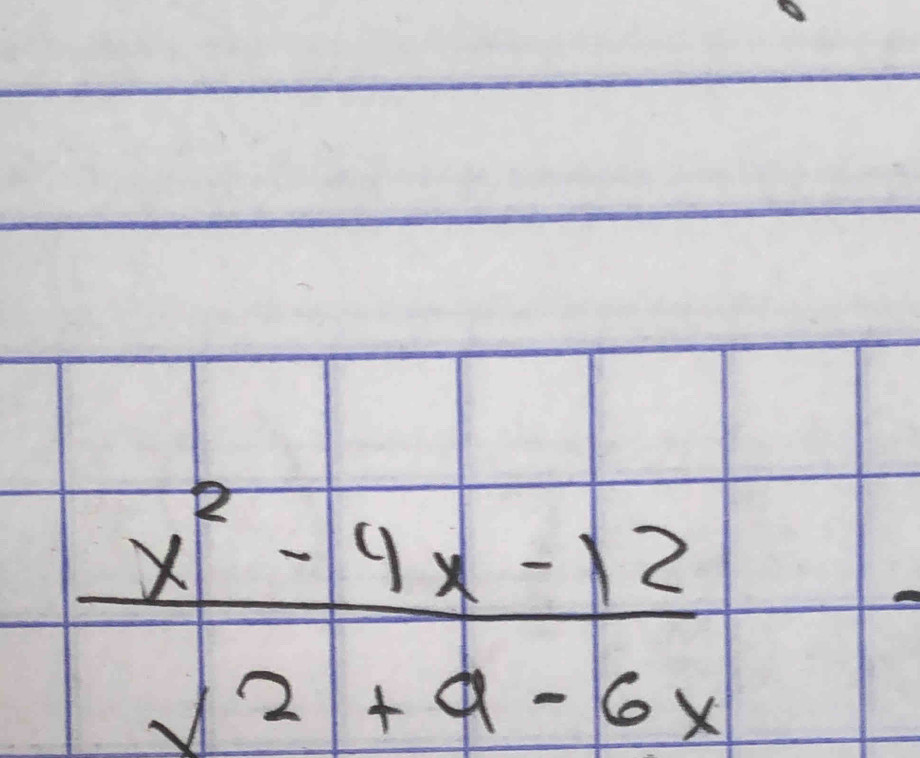 x² - 4x - 12 -
x2 + 9 - 6x